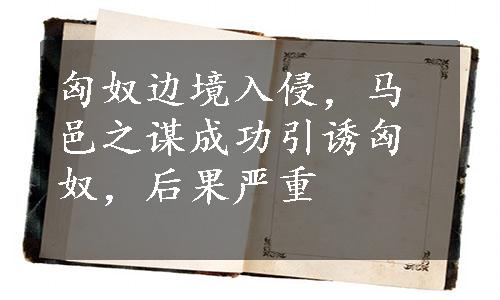 匈奴边境入侵，马
邑之谋成功引诱匈
奴，后果严重